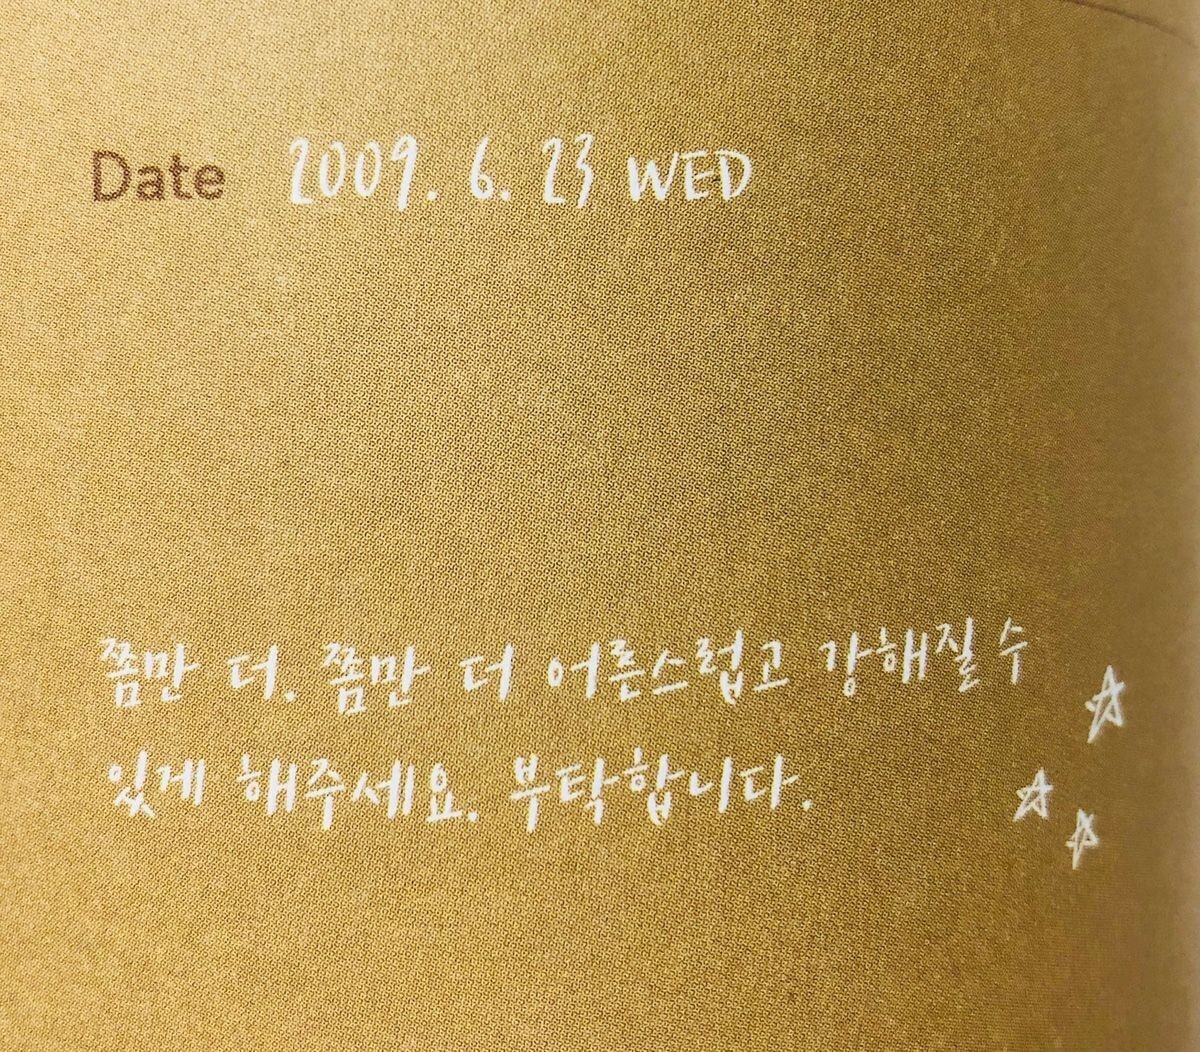 Date 2009. 6. 23 WED
쫌만 더. 쫌만 더 어른스럽고 강해질 수
있게 해주세요. 부탁합니다.